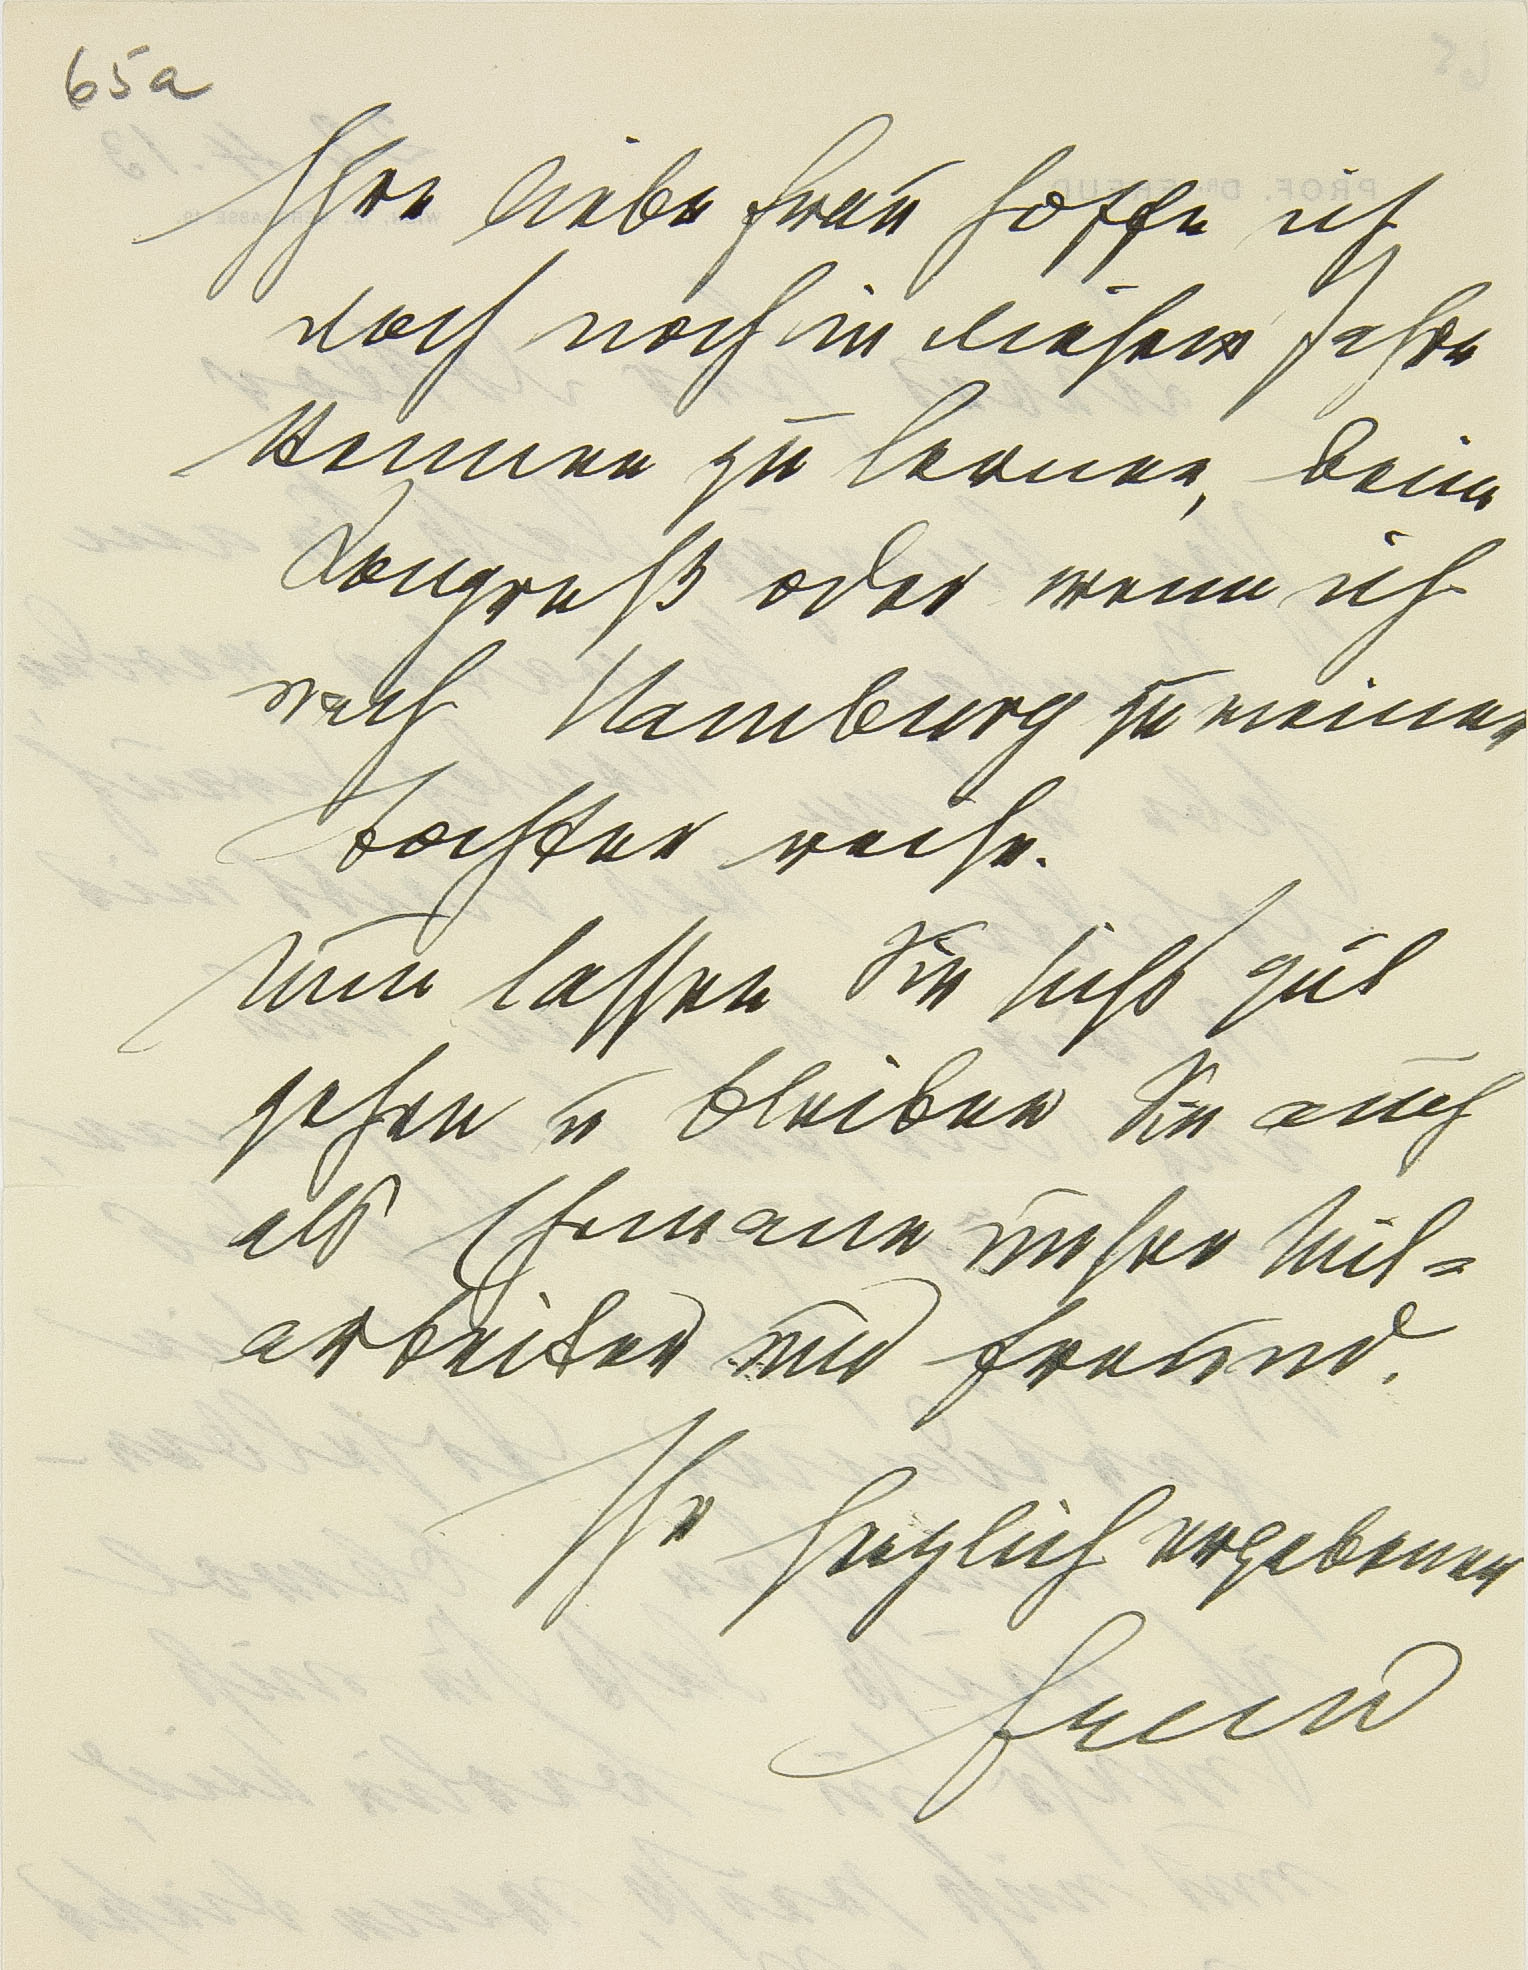 65a
Ihre liebe Frau hoffe ich
doch noch in diesem Jahre
kennen zu lernen, beim
Kongreß oder wenn ich
nach Hamburg zu meiner
Tochter reise.
Nun lassen Sie sichs gut
gehen u bleiben Sie auch
als Ehemann unser Mit-
arbeiter und Freund.
Ihr herzlich ergebener
Freud